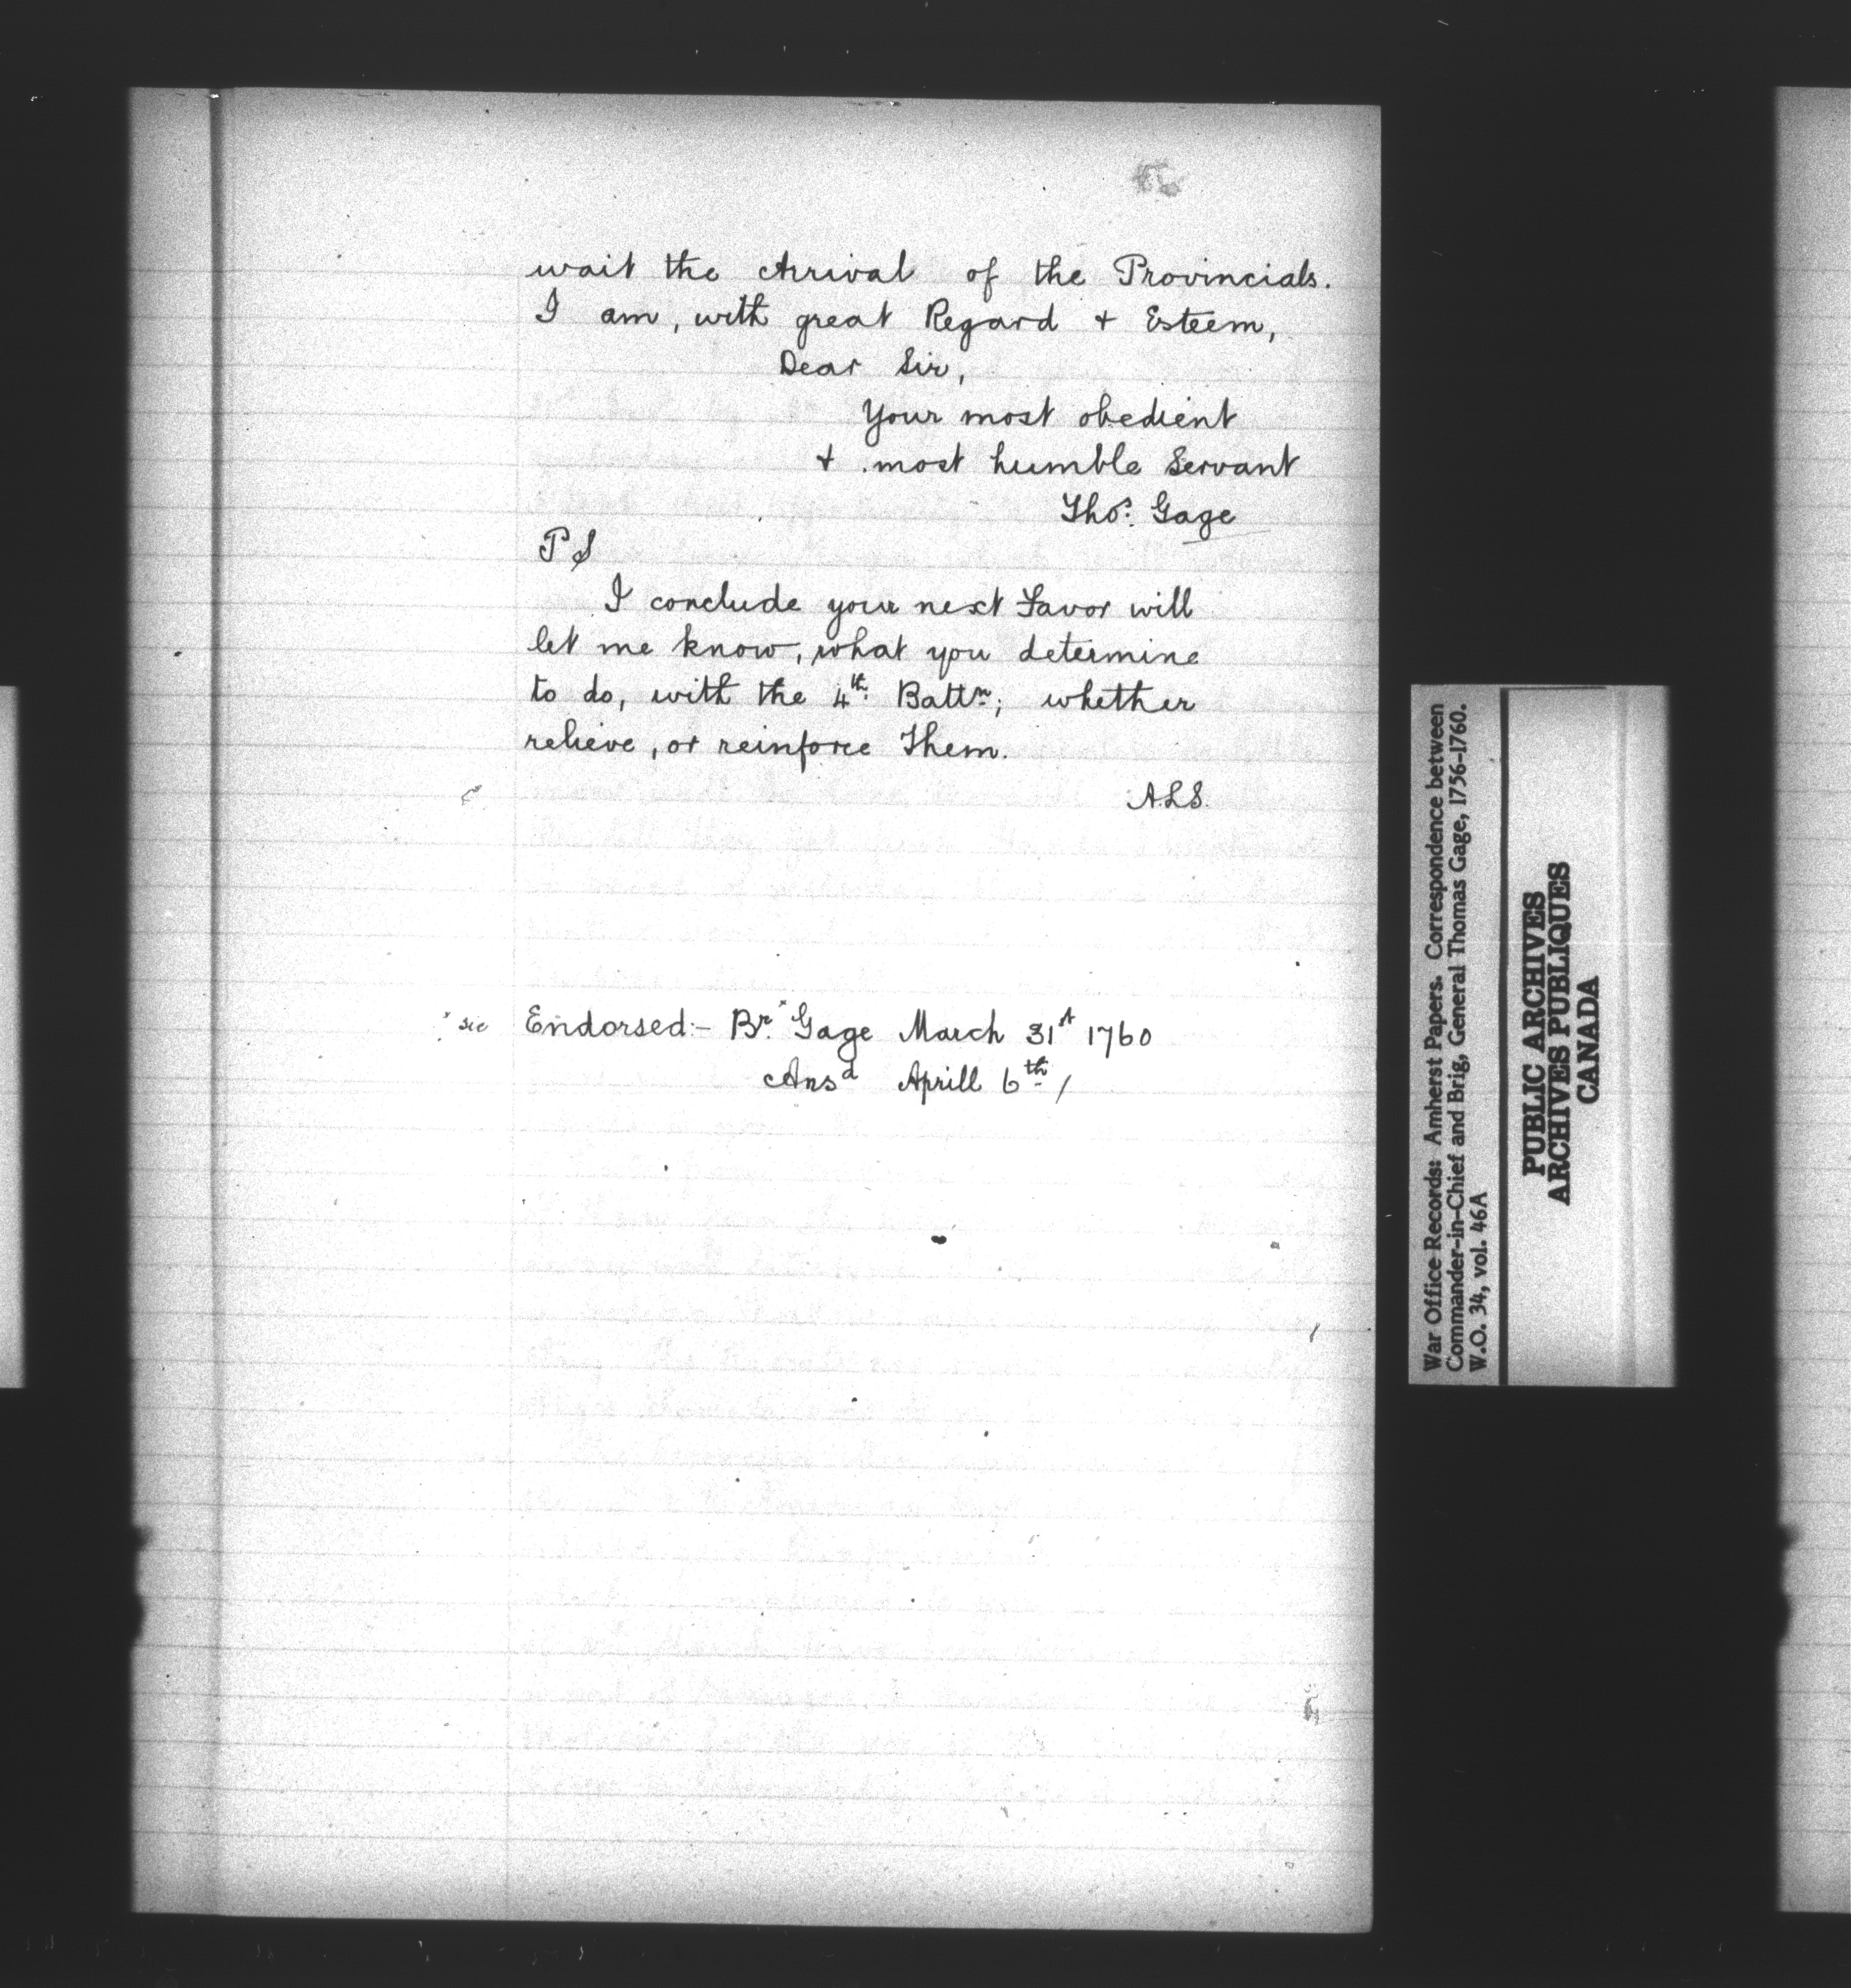 wait the Arrival of the Provincials.
I am, with great Regard + Esteem,
Dear Sir,
Your most obedient
+ most humble Servant
Thos. Gage
PS
I conclude your next Favor will
let me know, what you determine
to do, with the 4th. Battn; whether
relieve, or reinforce Them.
A.L.S.
x sic Endorsed:- Br. x Gage March 31st 1760
Ansd Aprill 6th /
War Office Records: Amherst Papers. Correspondence between
Commander-in-Chief and Brig, General Thomas Gage, 1756-1760.
W.O. 34, vol. 46A
PUBLIC ARCHIVES
ARCHIVES PUBLIQUES
CANADA